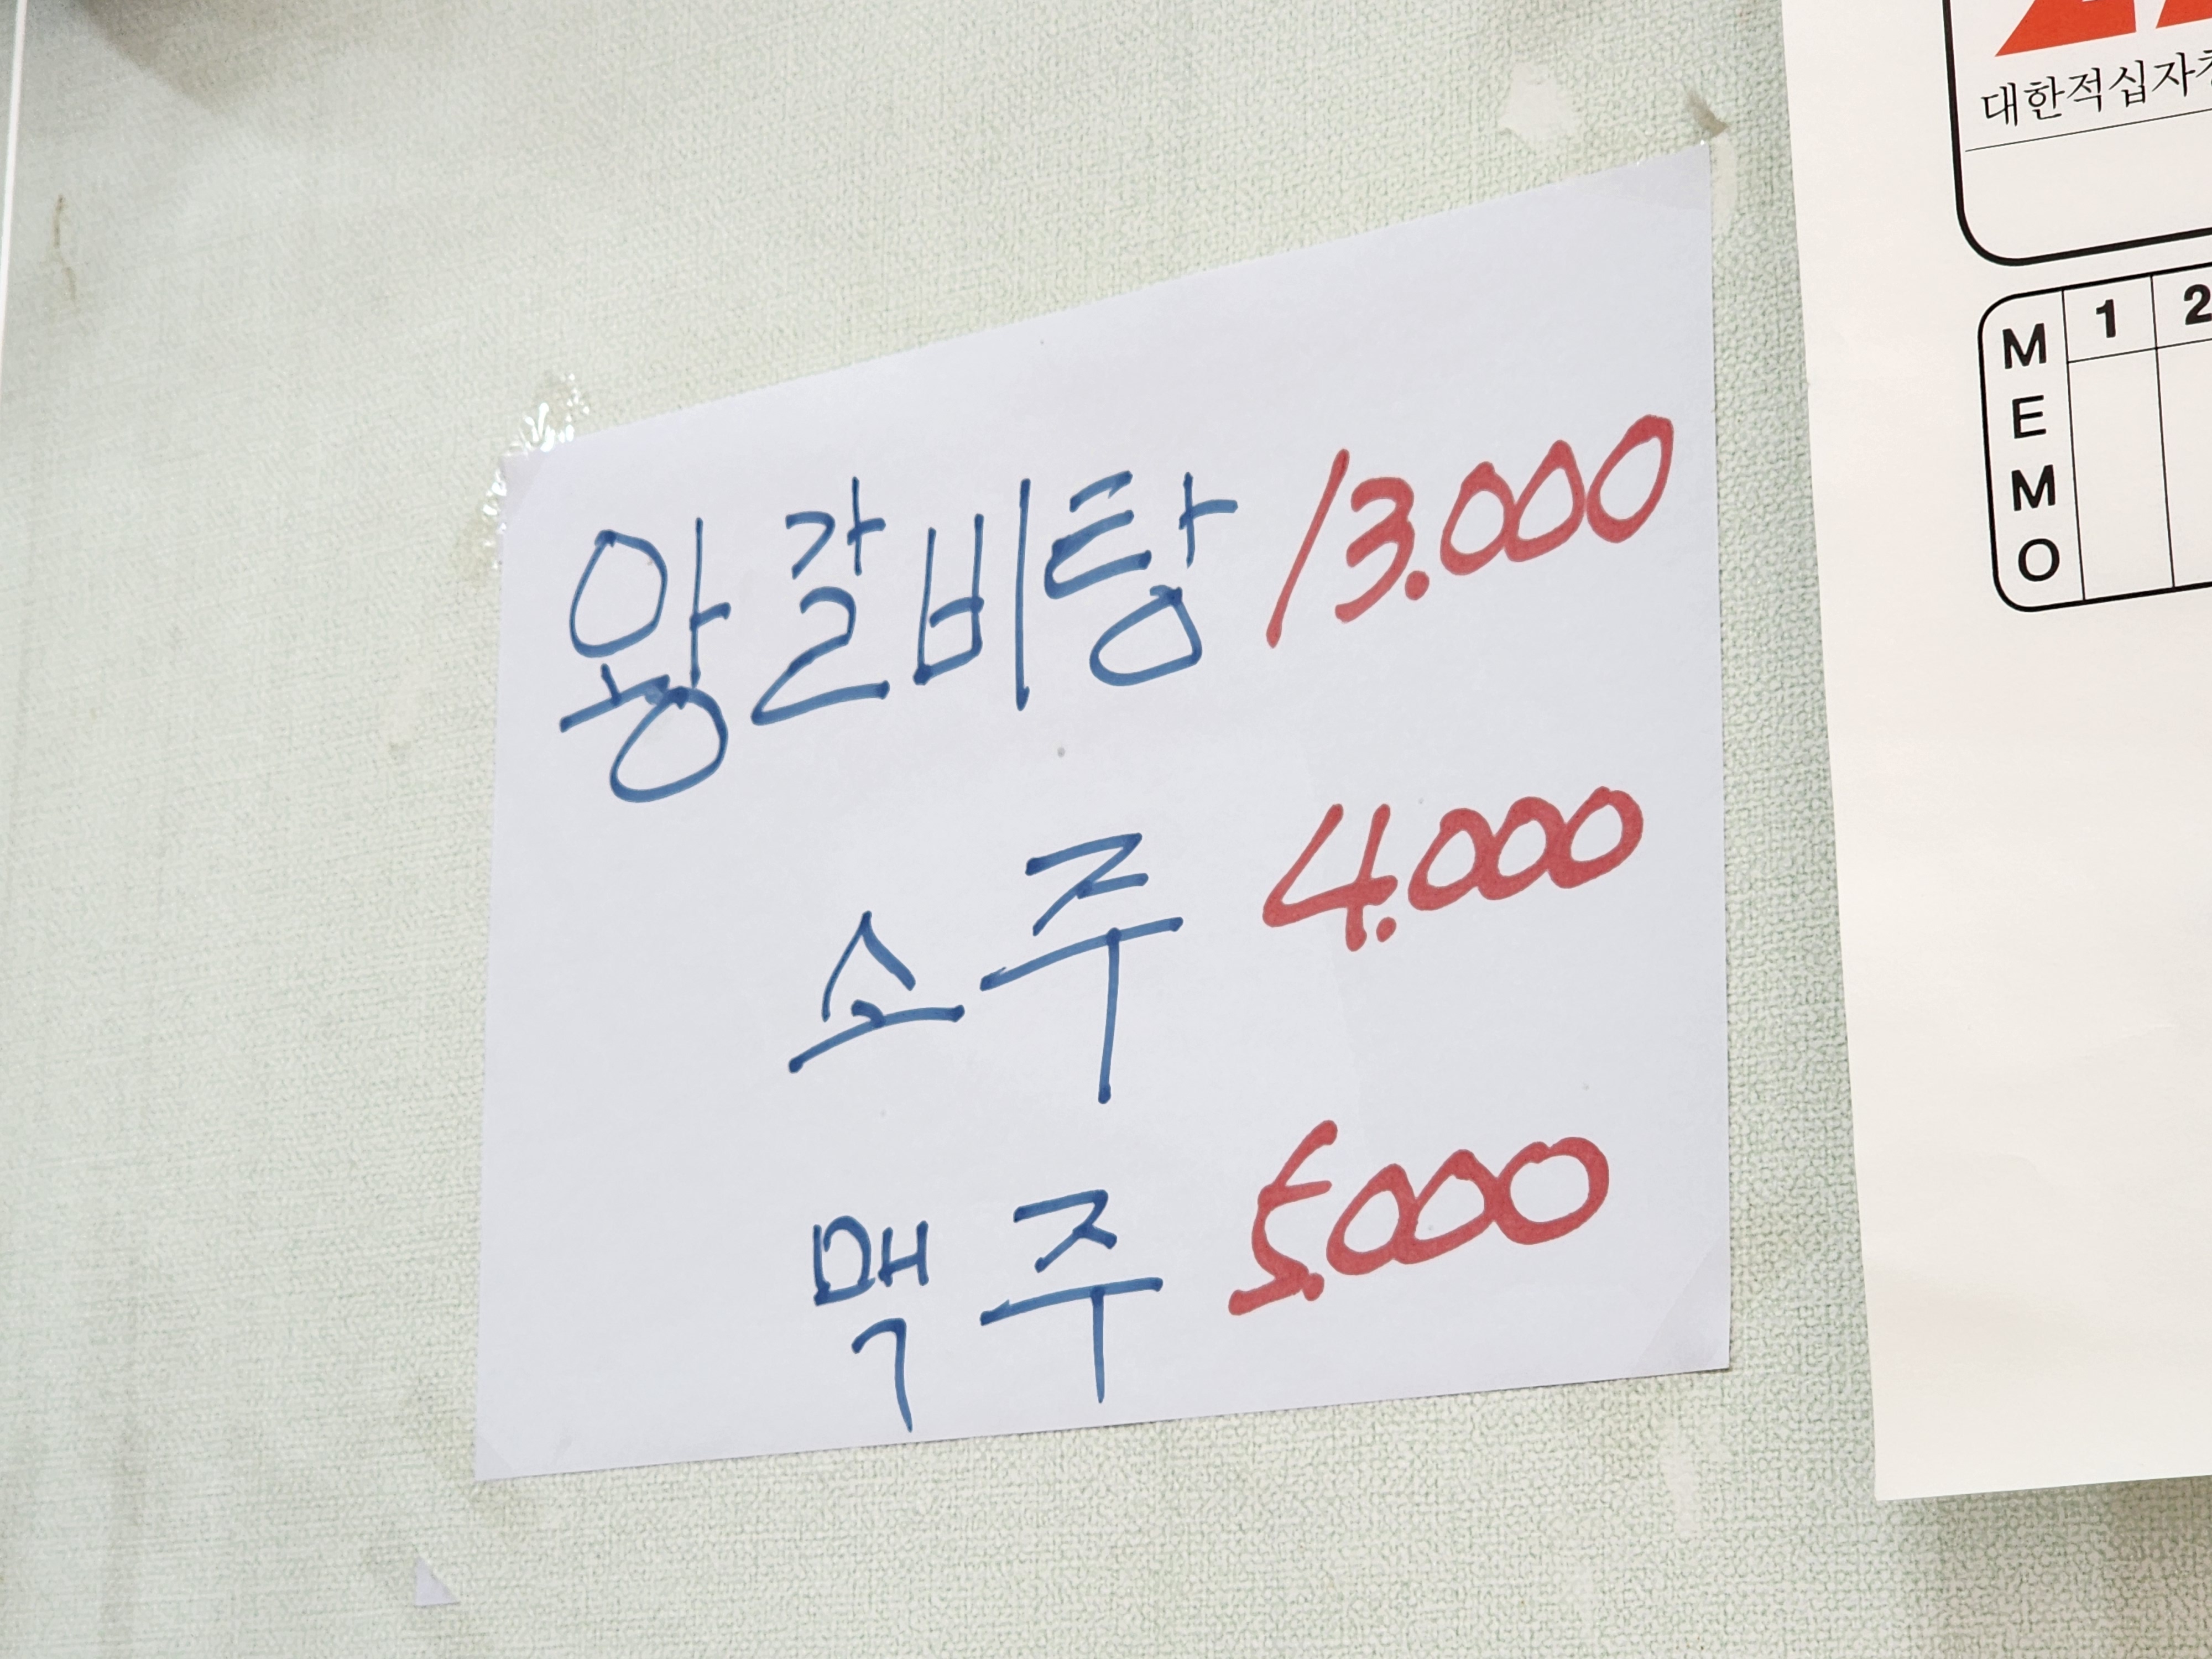 왕갈비탕 13.000
소주 4.000
맥주 5.000
대한적십자
1 2
MEMO